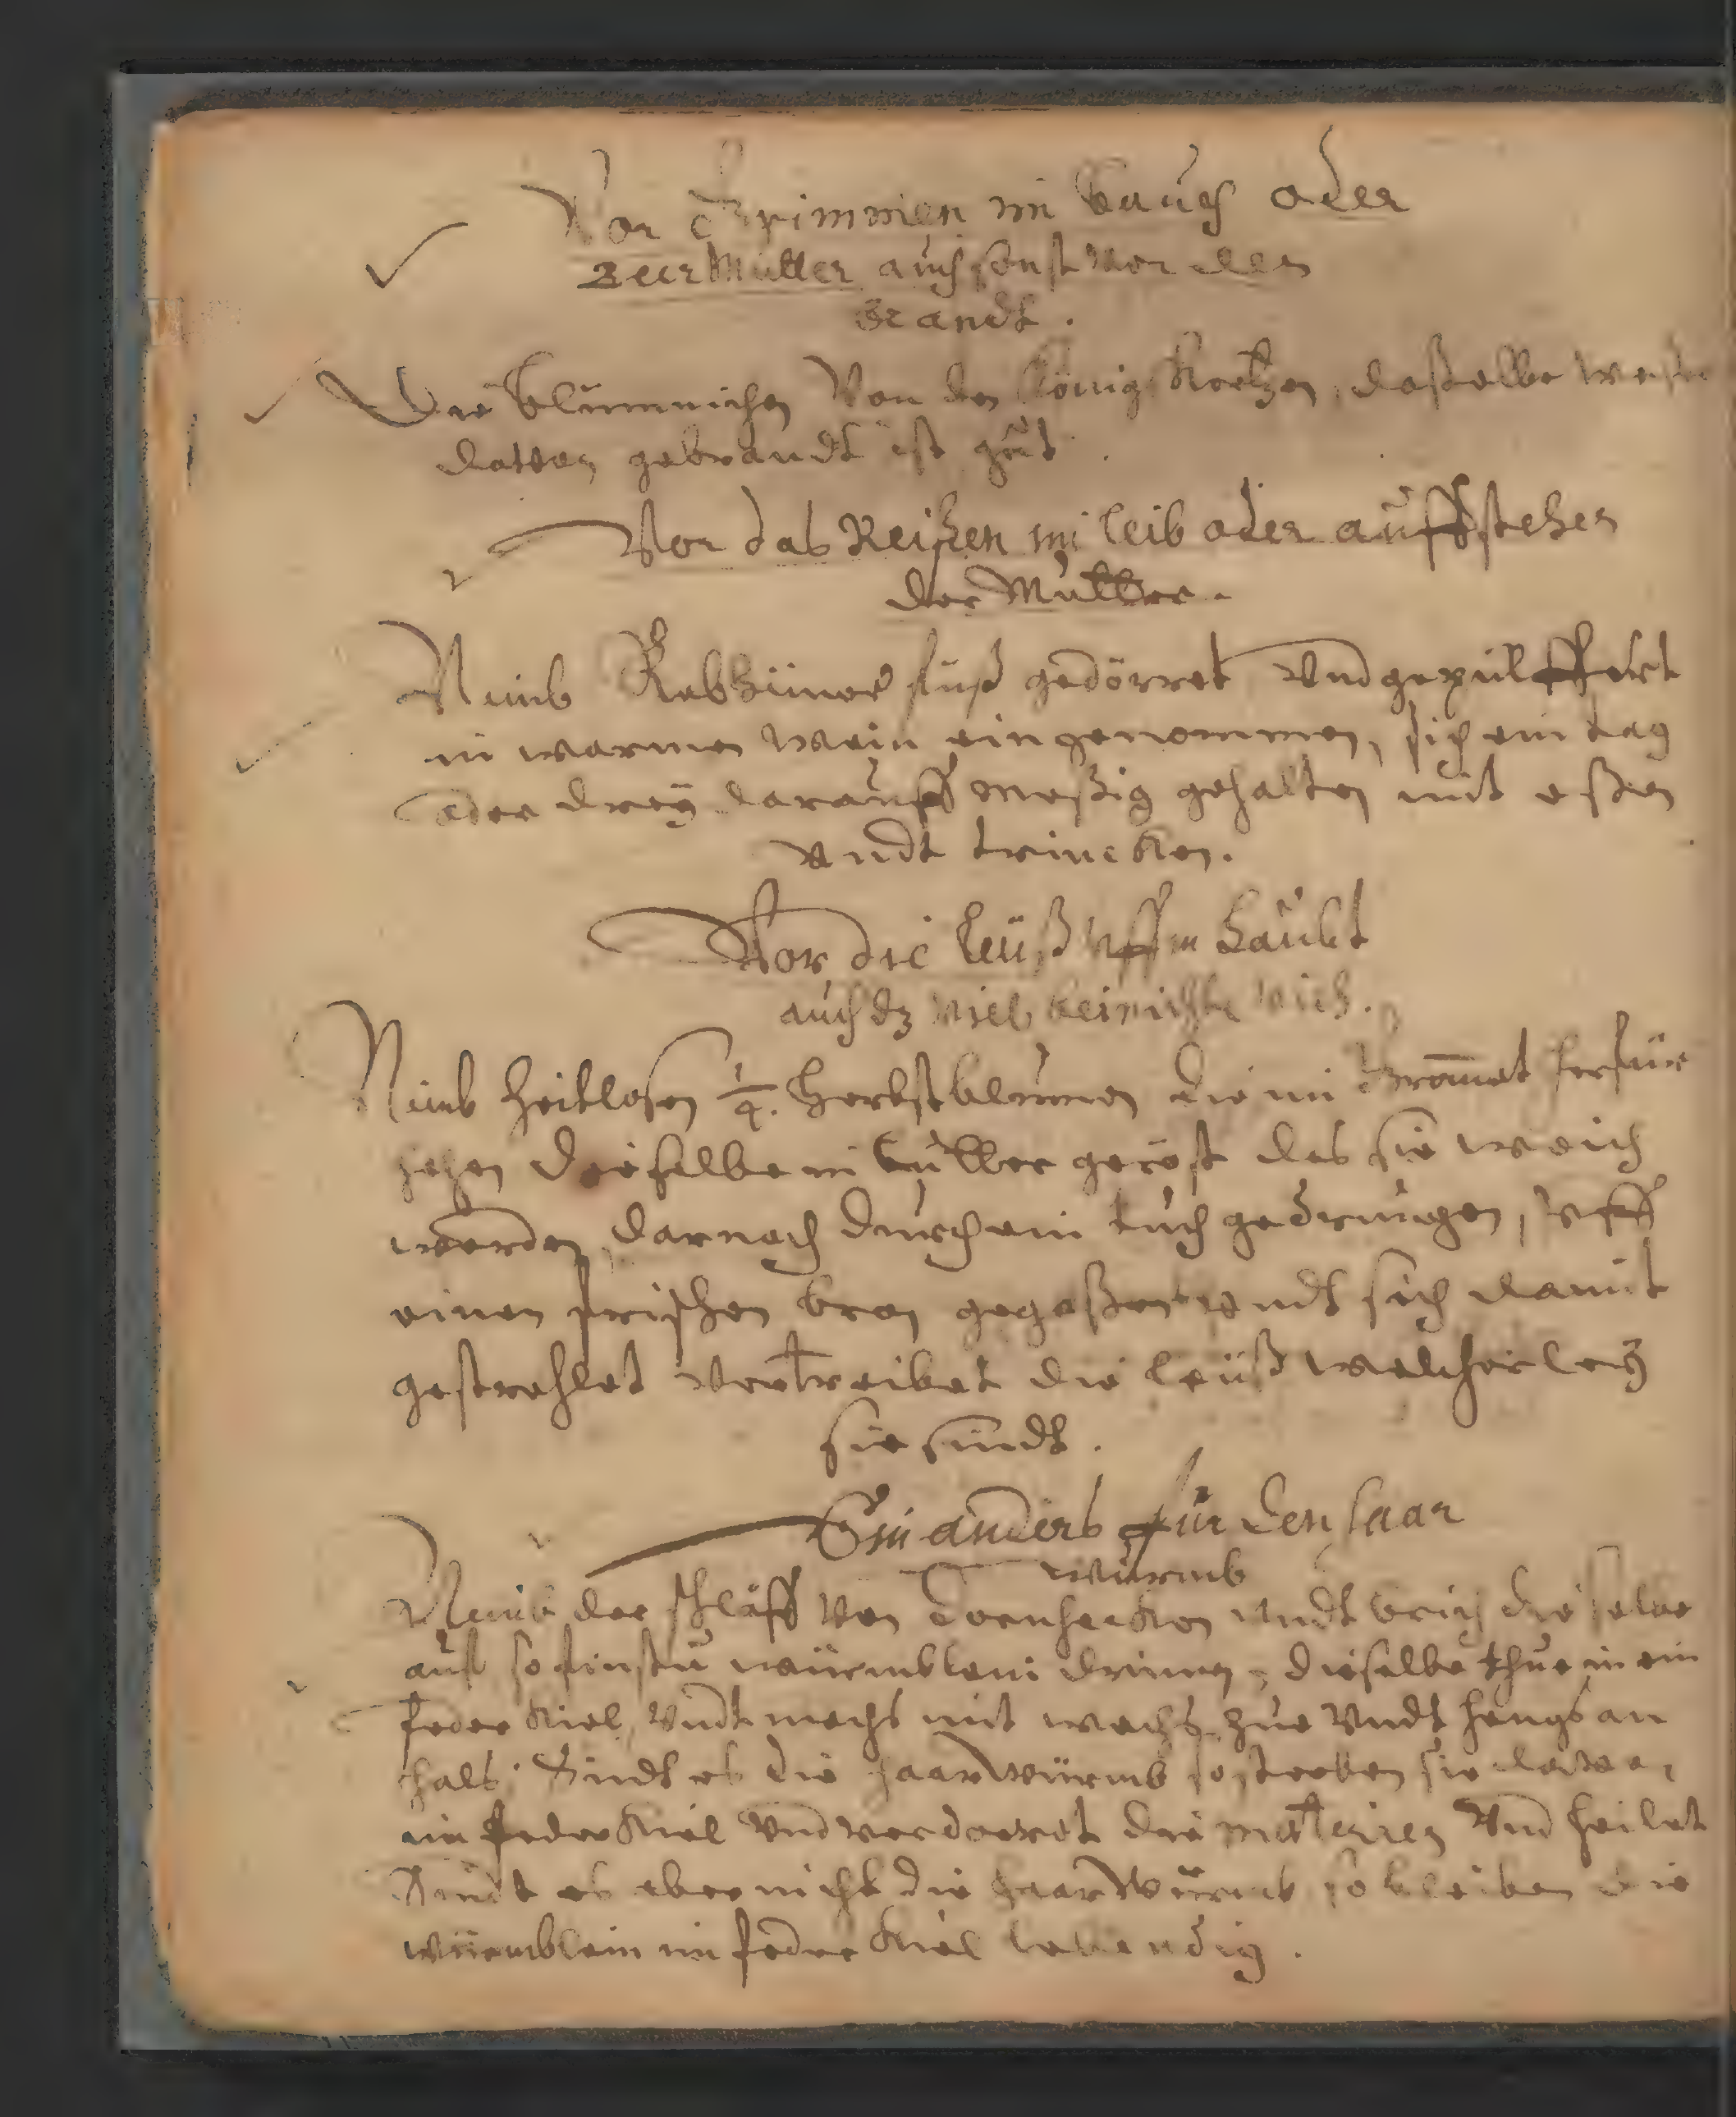 Vor Grimmen im bauch oder
Beermutter auch sonst vor den
Brandt.
Die blümmichen Von den König Kertzen, daßelbe waßer
davon gebrandt ist gut.
Vor das Reißen im leib oder auffstehen
der Mutter.
Nimb Rebhüner füß gedörret Vnd gepülffert
in warmen Wein eingenommen, sich ein tag
oder dreÿ darauff meßig gehalten mit eßen
vndt trincken.
Vor die leüß vffm haubt
auch dz viel Vieh.
Nimb Zeitlosen ¼. herbstblumen die im Grom̄et herfür
gehen dieselbe in butter geröst das sie weich
werden, darnach durch ein tuch gedrungen, vff
einen frischen bron gegoßen vndt sich damit
gestrehlet vertreibet die leüß welcherleÿ
sie sindt.
Ein anders für den haar
wurmb
Nimb der schläff von Dornhecken vndt brich dieselbe
auf so finstu würmblein drinnen, dieselbe thue in ein
feder Kiel, vndt machs mit wachs zue vndt hengs an
hals, Sindt es die haarwürmb so sterben sie
im feder Kiel vnd verdorret die materien vnd heilet
Sindt es aber nicht die haarwürmb so bleiben die
würmblein im feder Kiel lebendig.